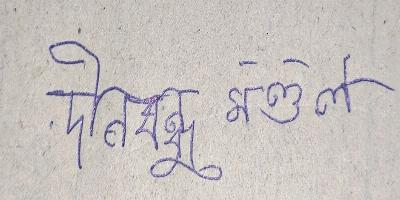 দীনবন্ধু মণ্ডল